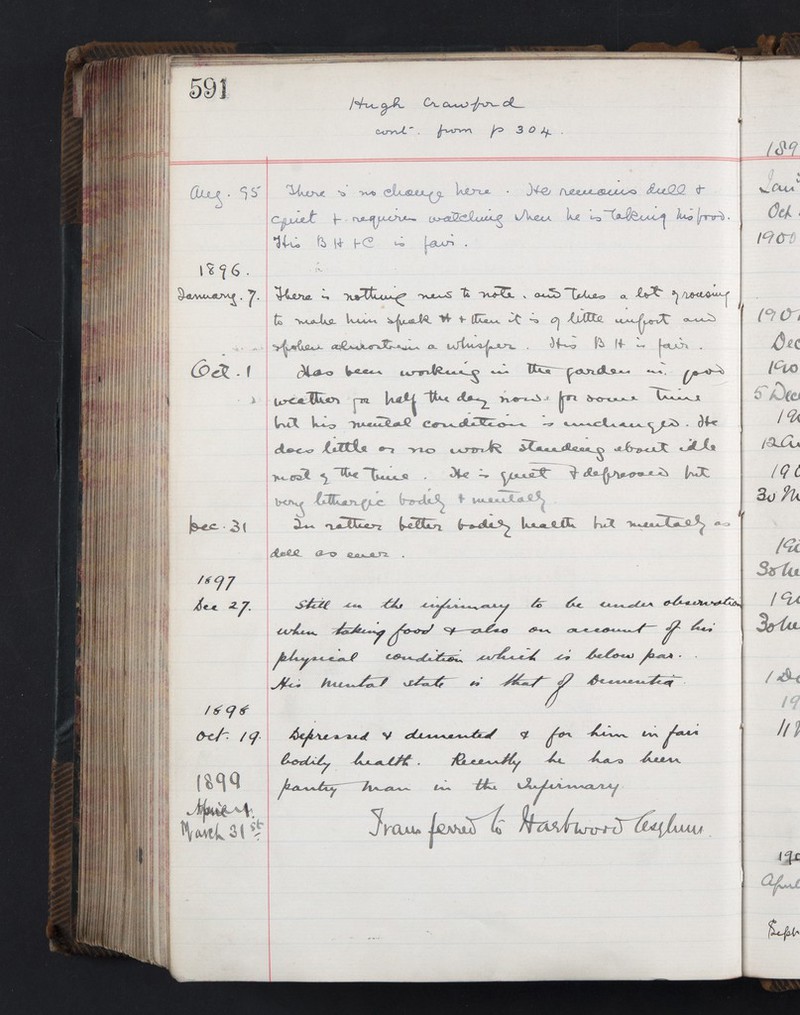 591
Hugh Crawford
cont. from p 304.
Aug. 95 There is no change here. He remains dull &
quiet & requires watching when he is taking his food.
His B H & C is fair.
1896.
January. 7. There is nothing new to note. and takes a lot of rousing
to make him speak & then it is of little import and
spoken almost in a whisper. His B H is fair.
Oct. 1 Has been working in the garden in good
weather for half the day now for some time
but his mental condition is unchanged. He
does little or no work standing about idle
most of the time. He is quiet & depressed but
very lethargic bodily & mentally.
Dec. 31 In rather better bodily health but mentally as
dull as ever.
1897
Dec 27. Still in the infirmary to be under observation
when taking food & also on account of his
physical condition which is below par.
His mental state is that of Dementia
1898
Oct. 19. Depressed & demented & for him in fair
bodily health. Recently he has been
pantry man in the Infirmary.
1899
April 1.
March 31st Transferred to Hartwood Asylum.
189
Jan
Oct.
1900
1901
Dec
190
5 Dec
19
12
190
30 M
190
30
190
30
1 De
19
11
190
April
Sept